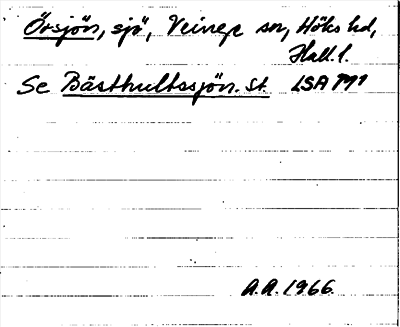 Örsjön, sjö, Veinge sn, Höks hd,
Hall. l.
Se Bästhultssjön. St. LSA
A.A. 1966.